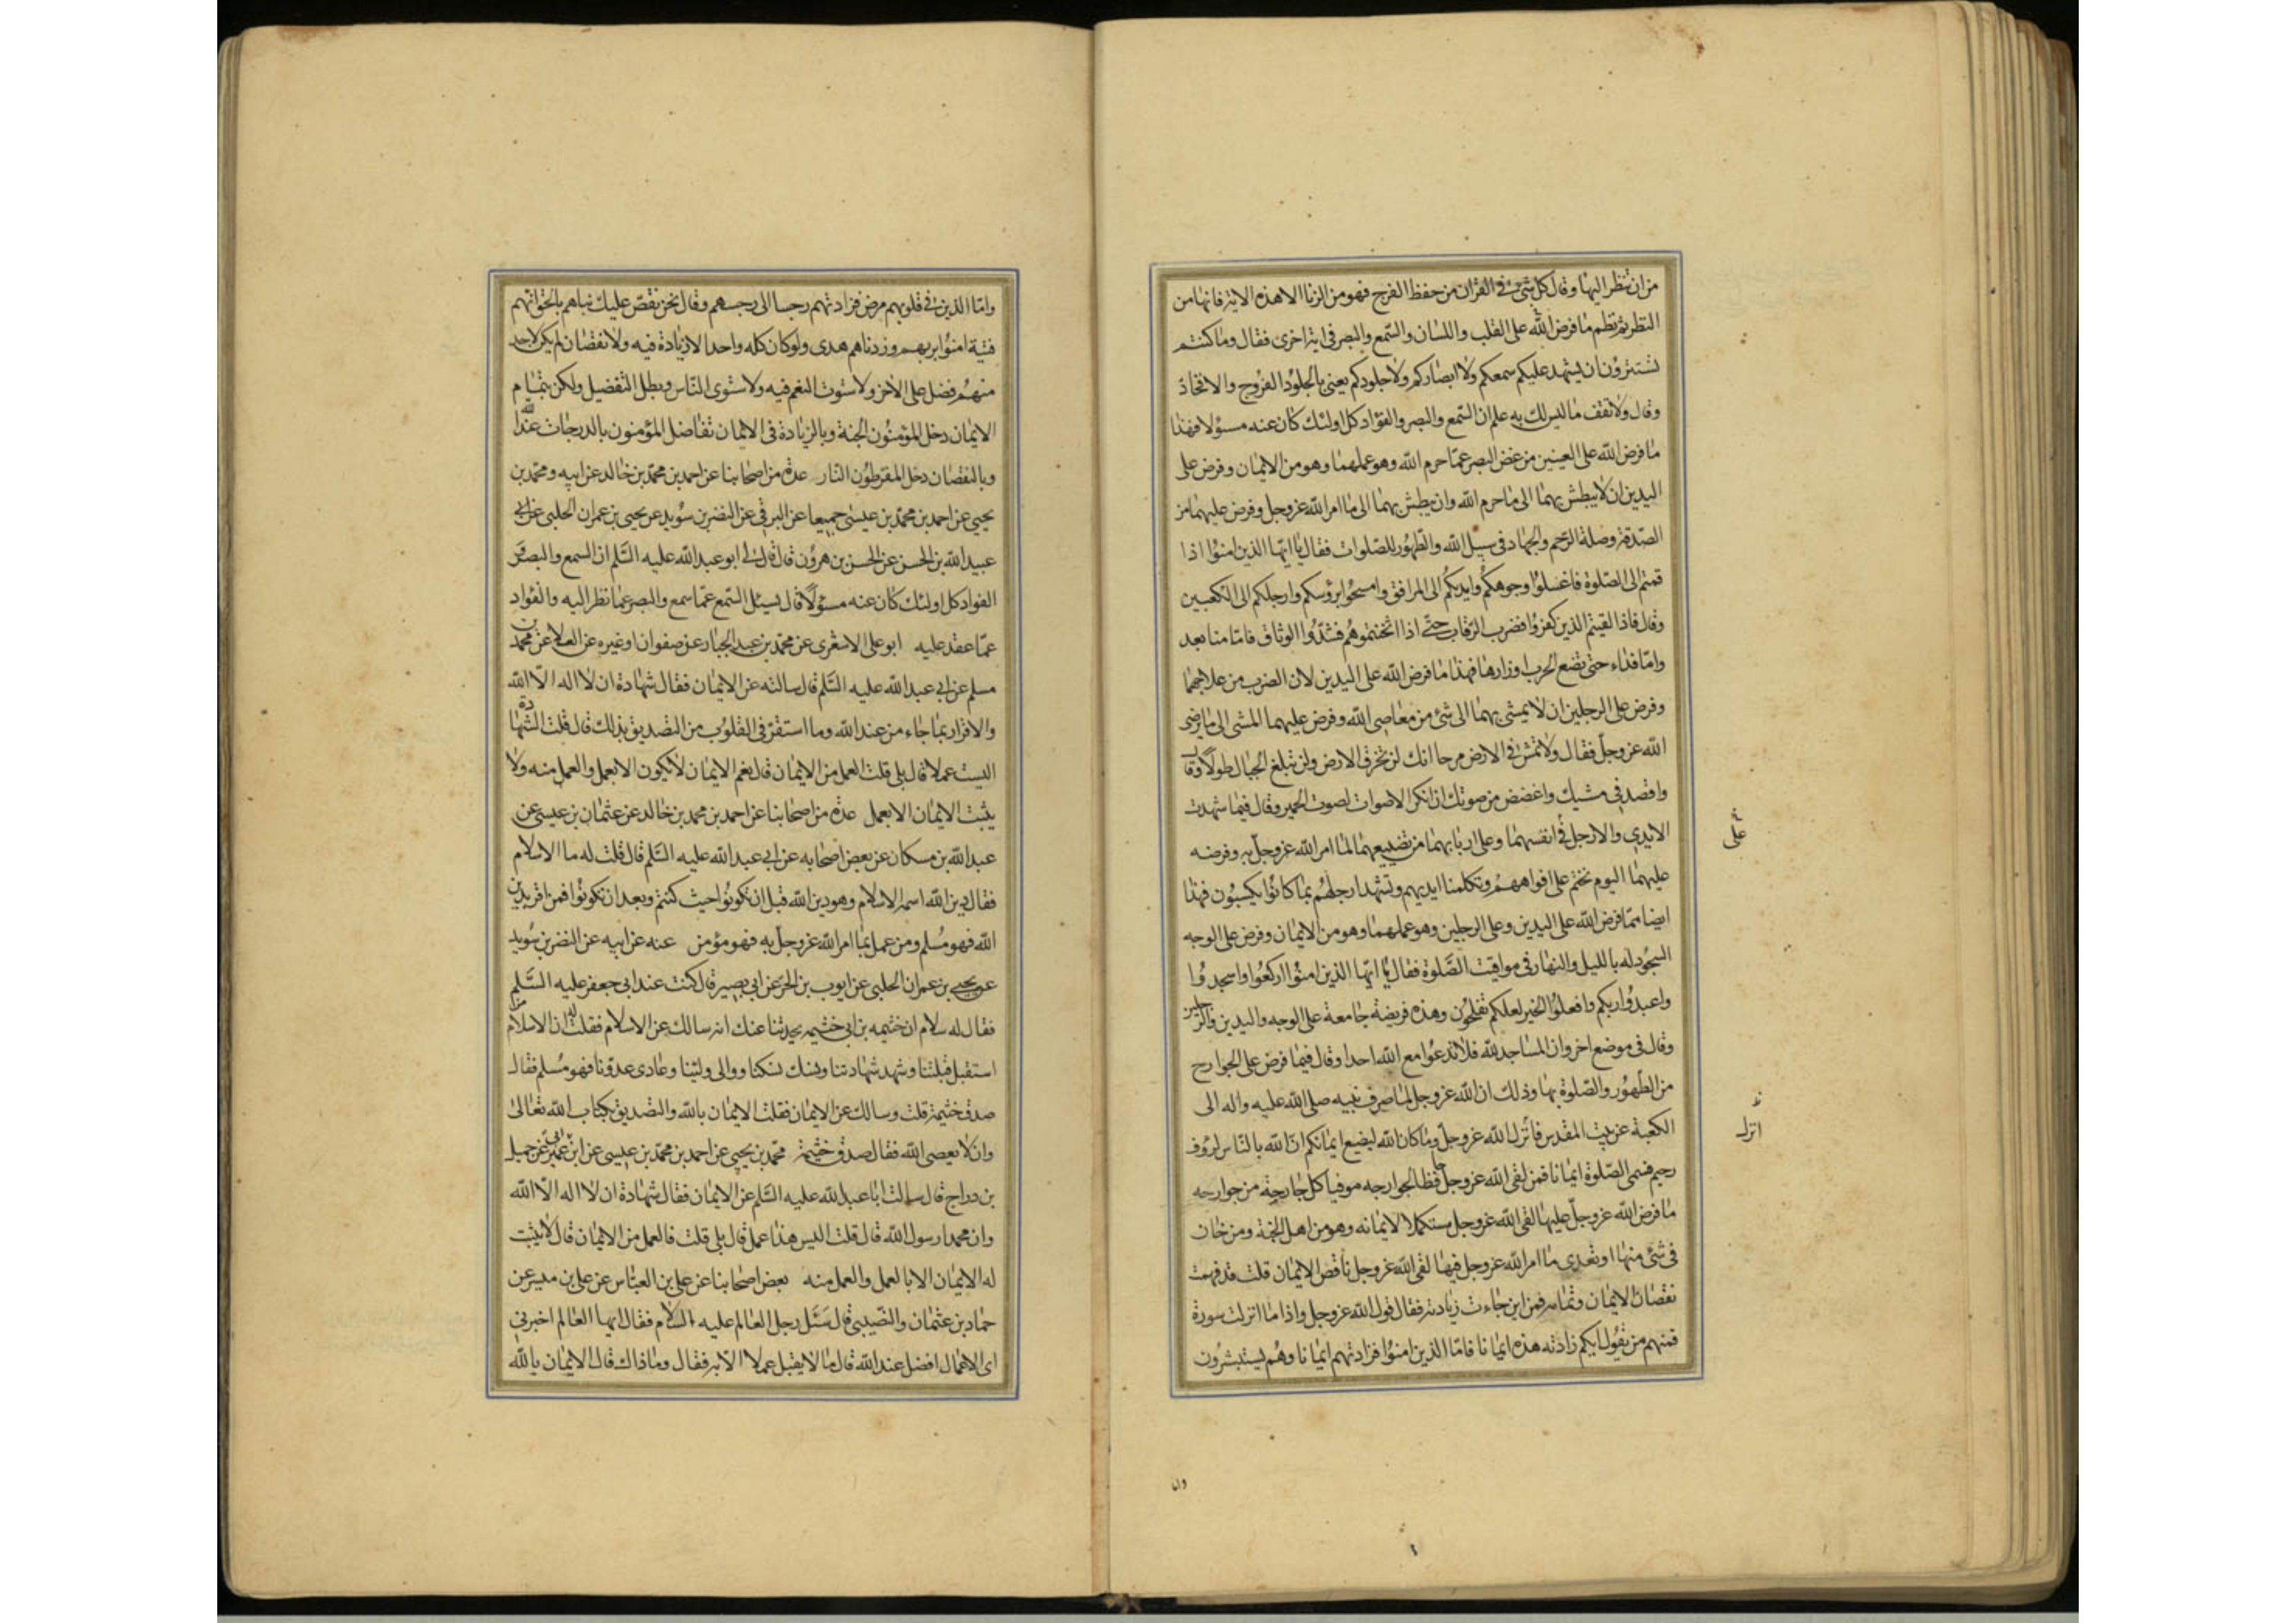 من ان تنظر اليها وقال كل شئ في القران من حفظ الفرج فهو من الزنا الا هذه الاية فانها من
النظر ثم نظم ما فرض الله على القلب واللسان والسمع والبصر في اية اخرى فقال وما كنتم
تستترون ان يشهد عليكم سمعكم ولا ابصاركم ولا جلودكم يعني بالجلود الفروج والافخاذ
وقال ولا تقف ما ليس لك به علم ان السمع والبصر والفؤاد كل اولئك كان عنه مسؤلا فهذا
ما فرض الله على العينين من غض البصر عما حرم الله وهو عملهما وهو من الايمان وفرض على
اليدين ان لا يبطش بهما الى ما حرم الله وان يبطش بهما الى ما امر الله عز وجل وفرض عليهما من
الصدقة وصلة الرحم والجهاد في سبيل الله والطهور للصلوات فقال يا ايها الذين امنوا اذا
قمتم الى الصلوة فاغسلوا وجوهكم وايديكم الى المرافق وامسحوا برؤسكم وارجلكم الى الكعبين
وقال فاذا لقيتم الذين كفروا فضرب الرقاب حتى اذا اثخنتموهم فشدوا الوثاق فاما منا بعد
واما فداء حتى تضع الحرب اوزارها فهذا ما فرض الله على اليدين لان الضرب من علاجهما
وفرض على الرجلين ان لا يمشي بهما الى شئ من معاصي الله وفرض عليهما المشي الى ما يرضي
الله عز وجل فقال ولا تمش في الارض مرحا انك لن تخرق الارض ولن تبلغ الجبال طولا وقال
واقصد في مشيك واغضض من صوتك ان انكر الاصوات لصوت الحمير وقال فيما شهدت
الايدي والارجل في انفسهما وعلى اربابهما من تضييعهما لما امر الله عز وجل به وفرضه
على
عليهما اليوم نختم على افواههم وتكلمنا ايديهم وتشهد ارجلهم بما كانوا يكسبون فهذا
ايضا مما فرض الله على اليدين وعلى الرجلين وهو عملهما وهو من الايمان وفرض على الوجه
السجود له بالليل والنهار في مواقيت الصلوة فقال يا ايها الذين امنوا اركعوا واسجدوا
واعبدوا ربكم وافعلوا الخير لعلكم تفلحون وهذه فريضة جامعة على الوجه واليدين والرجلين
وقال في موضع اخر وان المساجد لله فلا تدعوا مع الله احدا وقال فيما فرض على الجوارح
من الطهور والصلوة بها وذلك ان الله عز وجل لما صرف نبيه صلى الله عليه واله الى
الكعبة عن بيت المقدس فانزل الله عز وجل وما كان الله ليضيع ايمانكم ان الله بالناس لرؤف
انزل
رحيم فسمى الصلوة ايمانا فمن لقي الله عز وجل حافظا لجوارحه موفيا كل جارحة من جوارحه
ما فرض الله عز وجل عليها لقي الله عز وجل مستكملا لايمانه وهو من اهل الجنة ومن خان
في شئ منها او تعدى ما امر الله عز وجل فيها لقي الله عز وجل ناقص الايمان قلت قد فهمت
نقصان الايمان وتمامه فمن اين جاءت زيادته فقال قول الله عز وجل واذا ما انزلت سورة
فمنهم من يقول ايكم زادته هذه ايمانا فاما الذين امنوا فزادتهم ايمانا وهم يستبشرون
واما
واما الذين في قلوبهم مرض فزادتهم رجسا الى رجسهم وقال نحن نقص عليك نباهم بالحق انهم
فتية امنوا بربهم وزدناهم هدى ولو كان كله واحدا لا زيادة فيه ولا نقصان لم يكن لاحد
منهم فضل على الاخر ولاستوت النعم فيه ولاستوى الناس وبطل التفضيل ولكن بتمام
الايمان دخل المؤمنون الجنة وبالزيادة في الايمان تفاضل المؤمنون بالدرجات عند الله
وبالنقصان دخل المفرطون النار عدة من اصحابنا عن احمد بن محمد بن خالد عن ابيه ومحمد بن
يحيى عن احمد بن محمد بن عيسى جميعا عن البرقي عن النضر بن سويد عن يحيى بن عمران الحلبي عن ابي
عبيد الله بن الحسن عن الحسن بن هرون قال قال لي ابو عبد الله عليه السلم ان السمع والبصر و
الفؤاد كل اولئك كان عنه مسؤلا قال يسئل السمع عما سمع والبصر عما نظر اليه والفؤاد
عما عقد عليه ابو علي الاشعري عن محمد بن عبد الجبار عن صفوان او غيره عن العلا عن محمد بن
مسلم عن ابي عبد الله عليه السلم قال سالته عن الايمان فقال شهادة ان لا اله الا الله
والاقرار بما جاء من عند الله وما استقر في القلوب من التصديق بذلك قال قلت الشهادة
اليست عملا قال بلى قلت العمل من الايمان قال نعم الايمان لا يكون الا بعمل والعمل منه ولا
يثبت الايمان الا بعمل عدة من اصحابنا عن احمد بن محمد بن خالد عن عثمان بن عيسى عن
عبد الله بن مسكان عن بعض اصحابه عن ابي عبد الله عليه السلم قال قلت له ما الاسلام
فقال دين الله اسمه الاسلام وهو دين الله قبل ان تكونوا حيث كنتم وبعد ان تكونوا فمن اقر بدين
الله فهو مسلم ومن عمل بما امر الله عز وجل به فهو مؤمن عنه عن ابيه عن النضر بن سويد
عن يحيى بن عمران الحلبي عن ايوب بن الحر عن ابي بصير قال كنت عند ابي جعفر عليه السلم
فقال له سلام ان خثيمه بن ابي خثيمه يحدثنا عنك انه سالك عن الاسلام فقلت له ان الاسلام من
استقبل قبلتنا وشهد شهادتنا ونسك نسكنا ووالى ولينا وعادى عدونا فهو مسلم فقال
صدق خثيمة قلت وسالك عن الايمان فقلت الايمان بالله والتصديق بكتاب الله تعالى
وان لا يعصى الله فقال صدق خثيمة محمد بن يحيى عن احمد بن محمد بن عيسى عن ابن ابي عمير عن جميل
بن دراج قال سالت ابا عبد الله عليه السلم عن الايمان فقال شهادة ان لا اله الا الله
وان محمدا رسول الله قال قلت اليس هذا عمل قال بلى قلت فالعمل من الايمان قال لا يثبت
له الايمان الا بالعمل والعمل منه بعض اصحابنا عن علي بن العباس عن علي بن ميسر عن
حماد بن عثمان والنصيبي قال سئل رجل العالم عليه السلام فقال ايها العالم اخبرني
اي الاعمال افضل عند الله قال ما لا يقبل عملا الا به فقال وما ذاك قال الايمان بالله